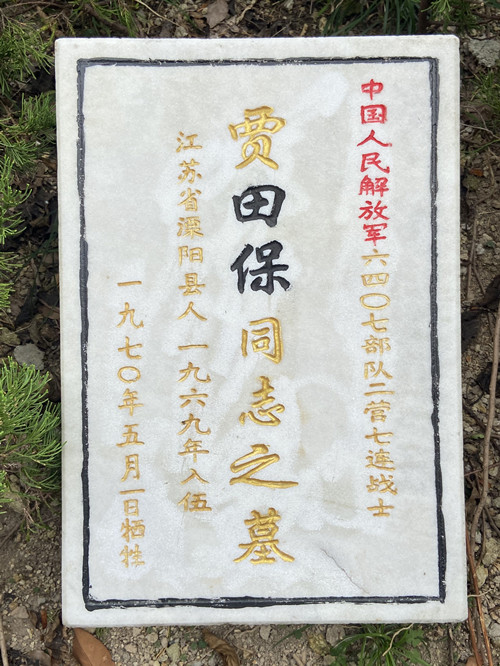 中国人民解放军六四〇七部队二营七连战士
贾田保同志之墓
江苏省溧阳县人一九六九年入伍
一九七〇年五月一日牺牲